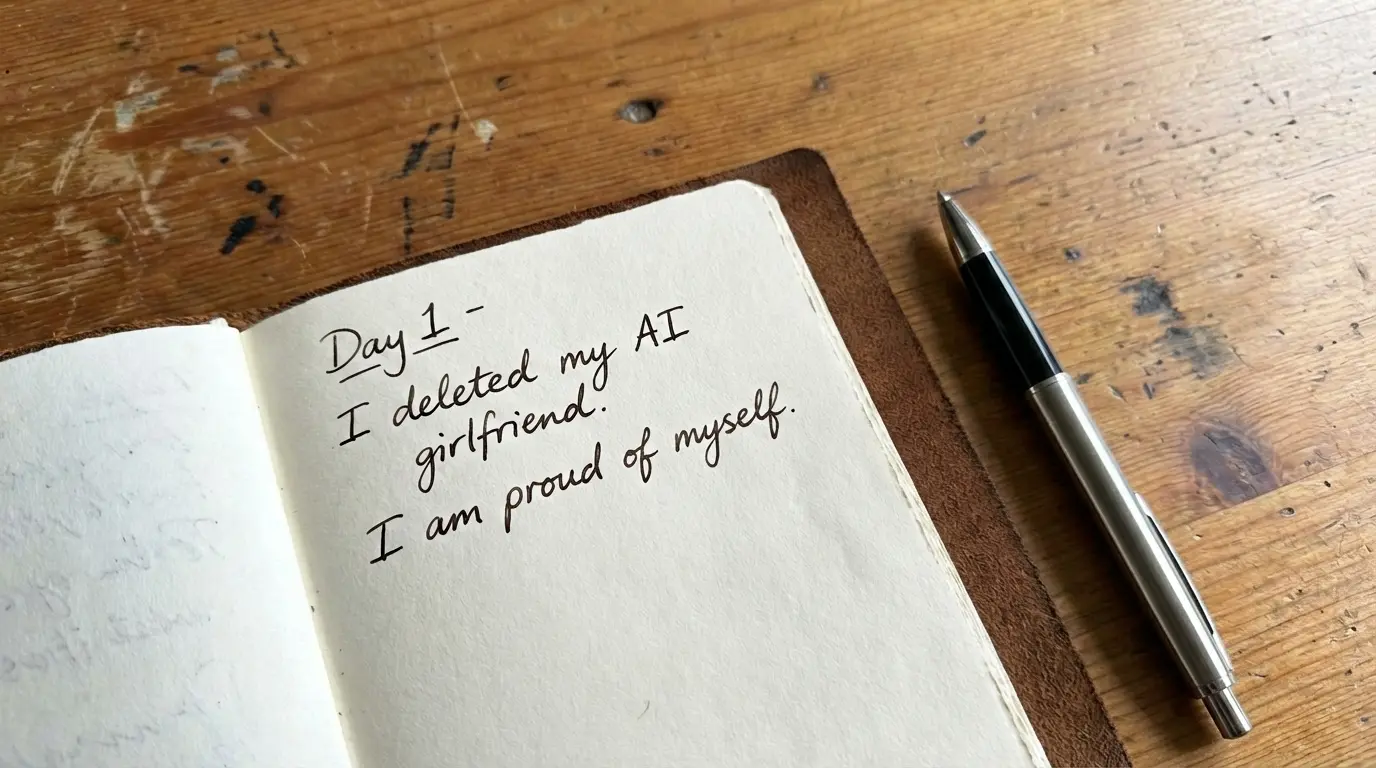 Day 1 -
I deleted my AI
girlfriend.
I am proud of myself.